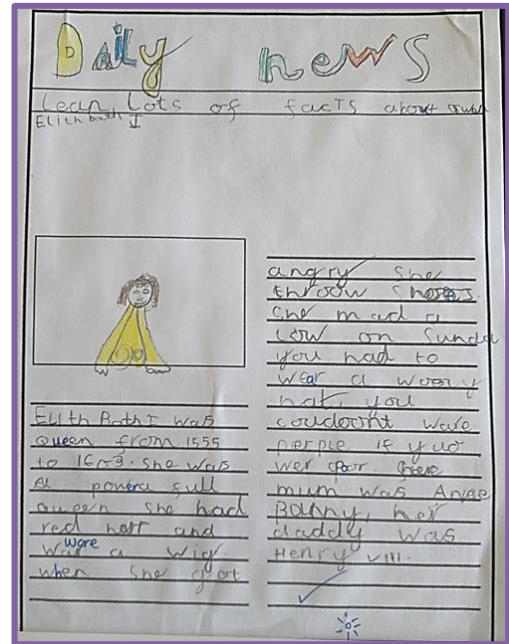 Daily news
Lean Lots of facTs about
Elithbath I
Elith Bath I was
queen from 1555
to 1609. She was
a powera full
queen she had
red herr and
wore a wig
when she got
angry she
throow shoes.
She mad a
low on Sunda
you had to
wear a wooly
hat, you
coudown't ware
perple if yuo
wer poor.
mum was Anne
Bolliny, her
daddy was
Henry VIII.